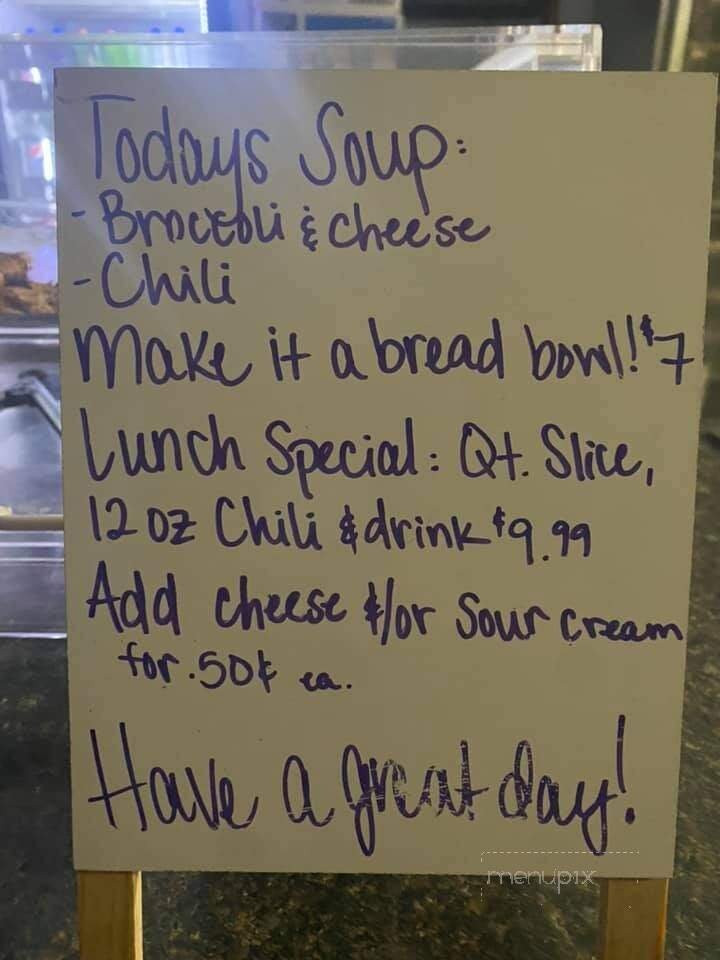 Todays Soup:
- Broccoli & cheese
- Chili
Make it a bread bowl! $7
Lunch Special: Qt. Slice,
12 oz Chili & drink $9.99
Add cheese &/or Sour cream
for .50¢ ea.
Have a great day!
menupix